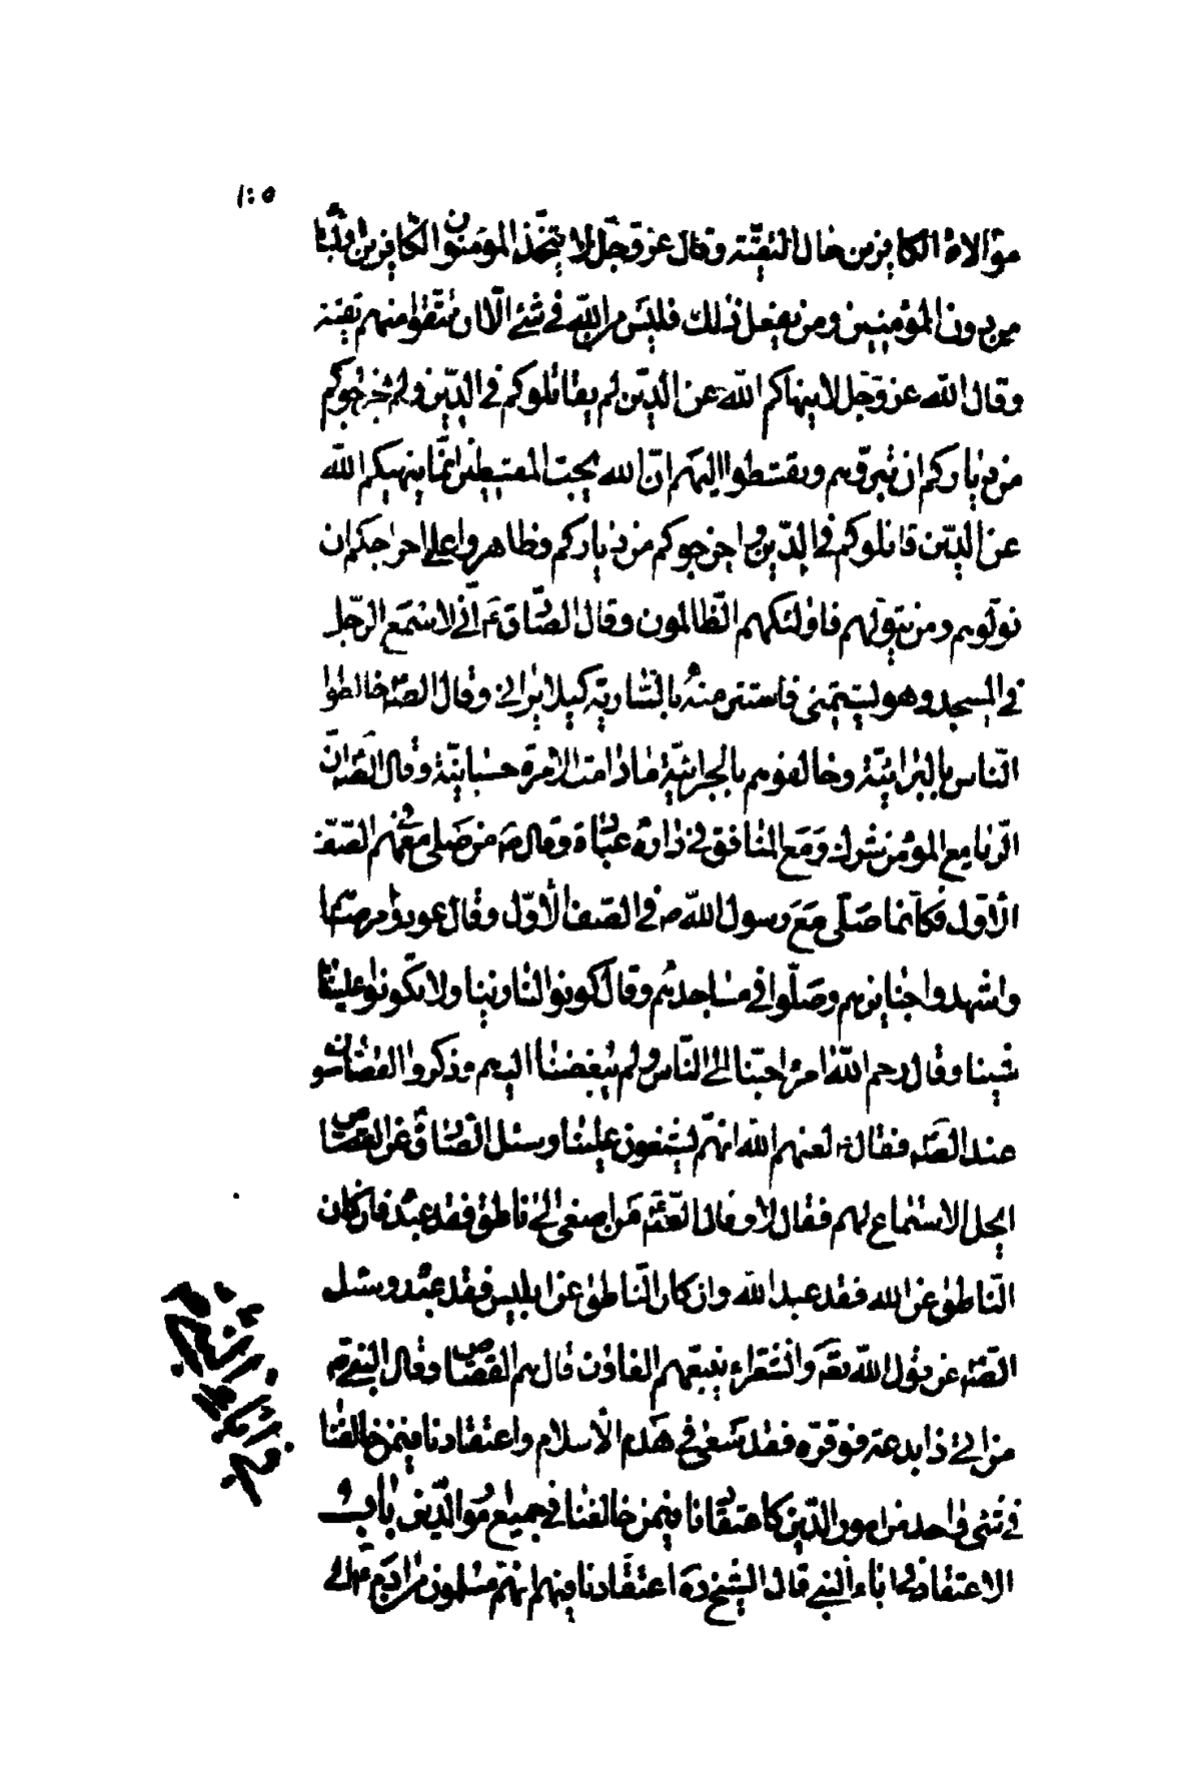 ١٠٥
موالاة الكافرين حال التقية وقال عز وجل لا يتخذ المؤمنون الكافرين اولياء
من دون المؤمنين ومن يفعل ذلك فليس من الله في شئ الا ان تتقوا منهم تقية
وقال الله عز وجل لا ينهاكم الله عن الذين لم يقاتلوكم في الدين ولم يخرجوكم
من دياركم ان تبروهم وتقسطوا اليهم ان الله يحب المقسطين انما ينهيكم الله
عن الذين قاتلوكم في الدين واخرجوكم من دياركم وظاهروا على اخراجكم ان
تولوهم ومن يتولهم فاولئك هم الظالمون وقال الصادق ع اني لاسمع الرجل
في المسجد وهو يشتمني فاستتر منه بالسارية كيلا يراني وقال الص خالطوا
الناس بالبرانية وخالفوهم بالجوانية ما دامت الامرة صبيانية وقال الص ان
الريا مع المؤمن شرك ومع المنافق في داره عبادة وقال ع من صلى معهم في الصف
الاول فكانما صلى مع رسول الله ص في الصف الاول وقال عودوا مرضاهم
واشهدوا جنايزهم وصلوا في مساجدهم وقال كونوا لنا زينا ولا تكونوا علينا
شينا وقال رحم الله امرء احببنا الى الناس ولم يبغضنا اليهم وذكروا القصاصون
عند الص فقال لعنهم الله انهم يشنعون علينا وسئل الصادق ع عن القصاص
ايحل الاستماع لهم فقال لا وقال ع من اصغى الى ناطق فقد عبده فان كان
الناطق عن الله فقد عبد الله وان كان الناطق عن ابليس فقد عبده وسئل
الص عن قول الله تع والشعراء يتبعهم الغاون قال هم القصاص وقال النبي ص
من اتى ذا بدعة فوقره فقد سعى في هدم الاسلام واعتقادنا فيمن خالفنا
في شئ واحد من امور الدين كاعتقادنا فيمن خالفنا في جميع امور الدين باب
الاعتقاد في اباء النبي قال الشيخ ره اعتقادنا فيهم انهم مسلمون من ادم الى